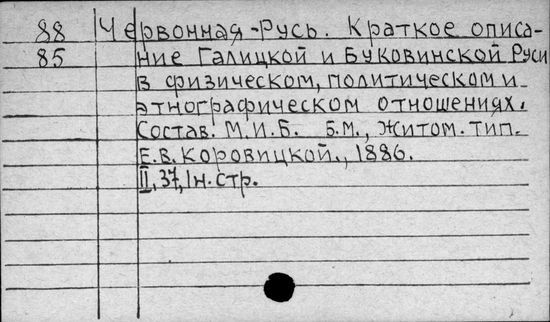 88 Червонная-Русь. Краткое описа-
85 ние Галицкой и Буковинской Руси
в физическом, политическом и
этнографическом отношениях.
Состав. М.И.Б. Б.М., Житом. тип.
Е.В. Коровицкой., 1886.
II, 37, 1н. стр.